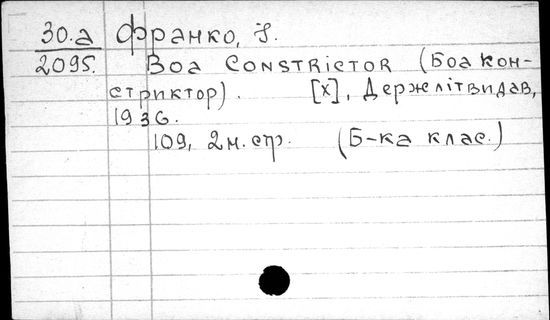 30.а Франко, І.
2095. Boa Constrictor (Боа кон-
стриктор). [Х], Держлітвидав,
1936.
109, 2 н. стр. (Б-ка клас.)